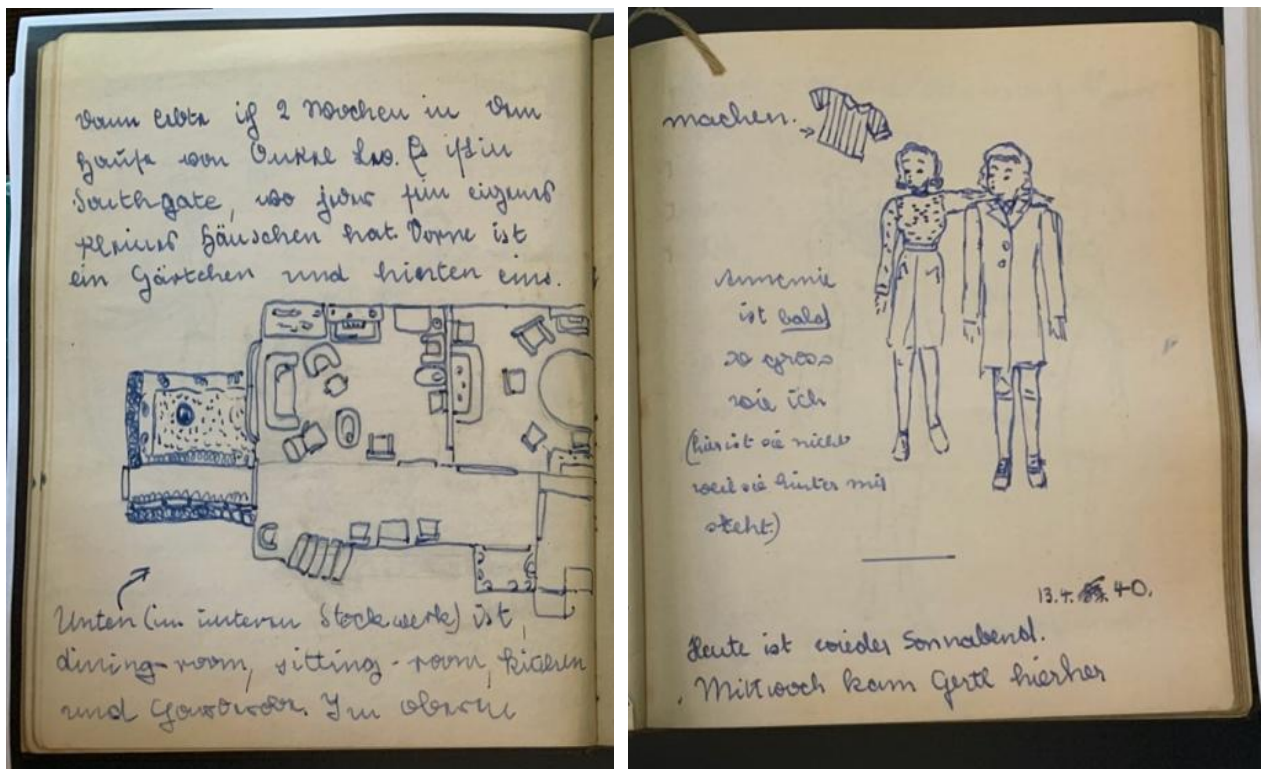 Dann lebte ich 2 Wochen in dem
Hause von Onkel Leo. Es ist in
Southgate, wo jeder sein eigenes
kleines Häuschen hat. Vorne ist
ein Gärtchen und hinten eins.
Unten (im unteren Stockwerk) ist
dining-room, sitting-room, kitchen
und Garderobe. Im oberen
machen.
Annemie
ist bald
so gross
wie ich
(hier ist sie nicht
weil sie hinter mir
steht.)
13.4. 40.
Heute ist wieder Sonnabend.
Mittwoch kam Gertl hierher